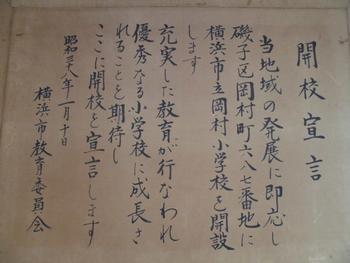 開校宣言
当地域の発展に即応し
磯子区岡村町六八七番地に
横浜市立岡村小学校を開設
します
充実した教育が行なわれ
優秀なる小学校に成長さ
れることを期待し
ここに開校を宣言します
昭和三八年一月十日
横浜市教育委員会